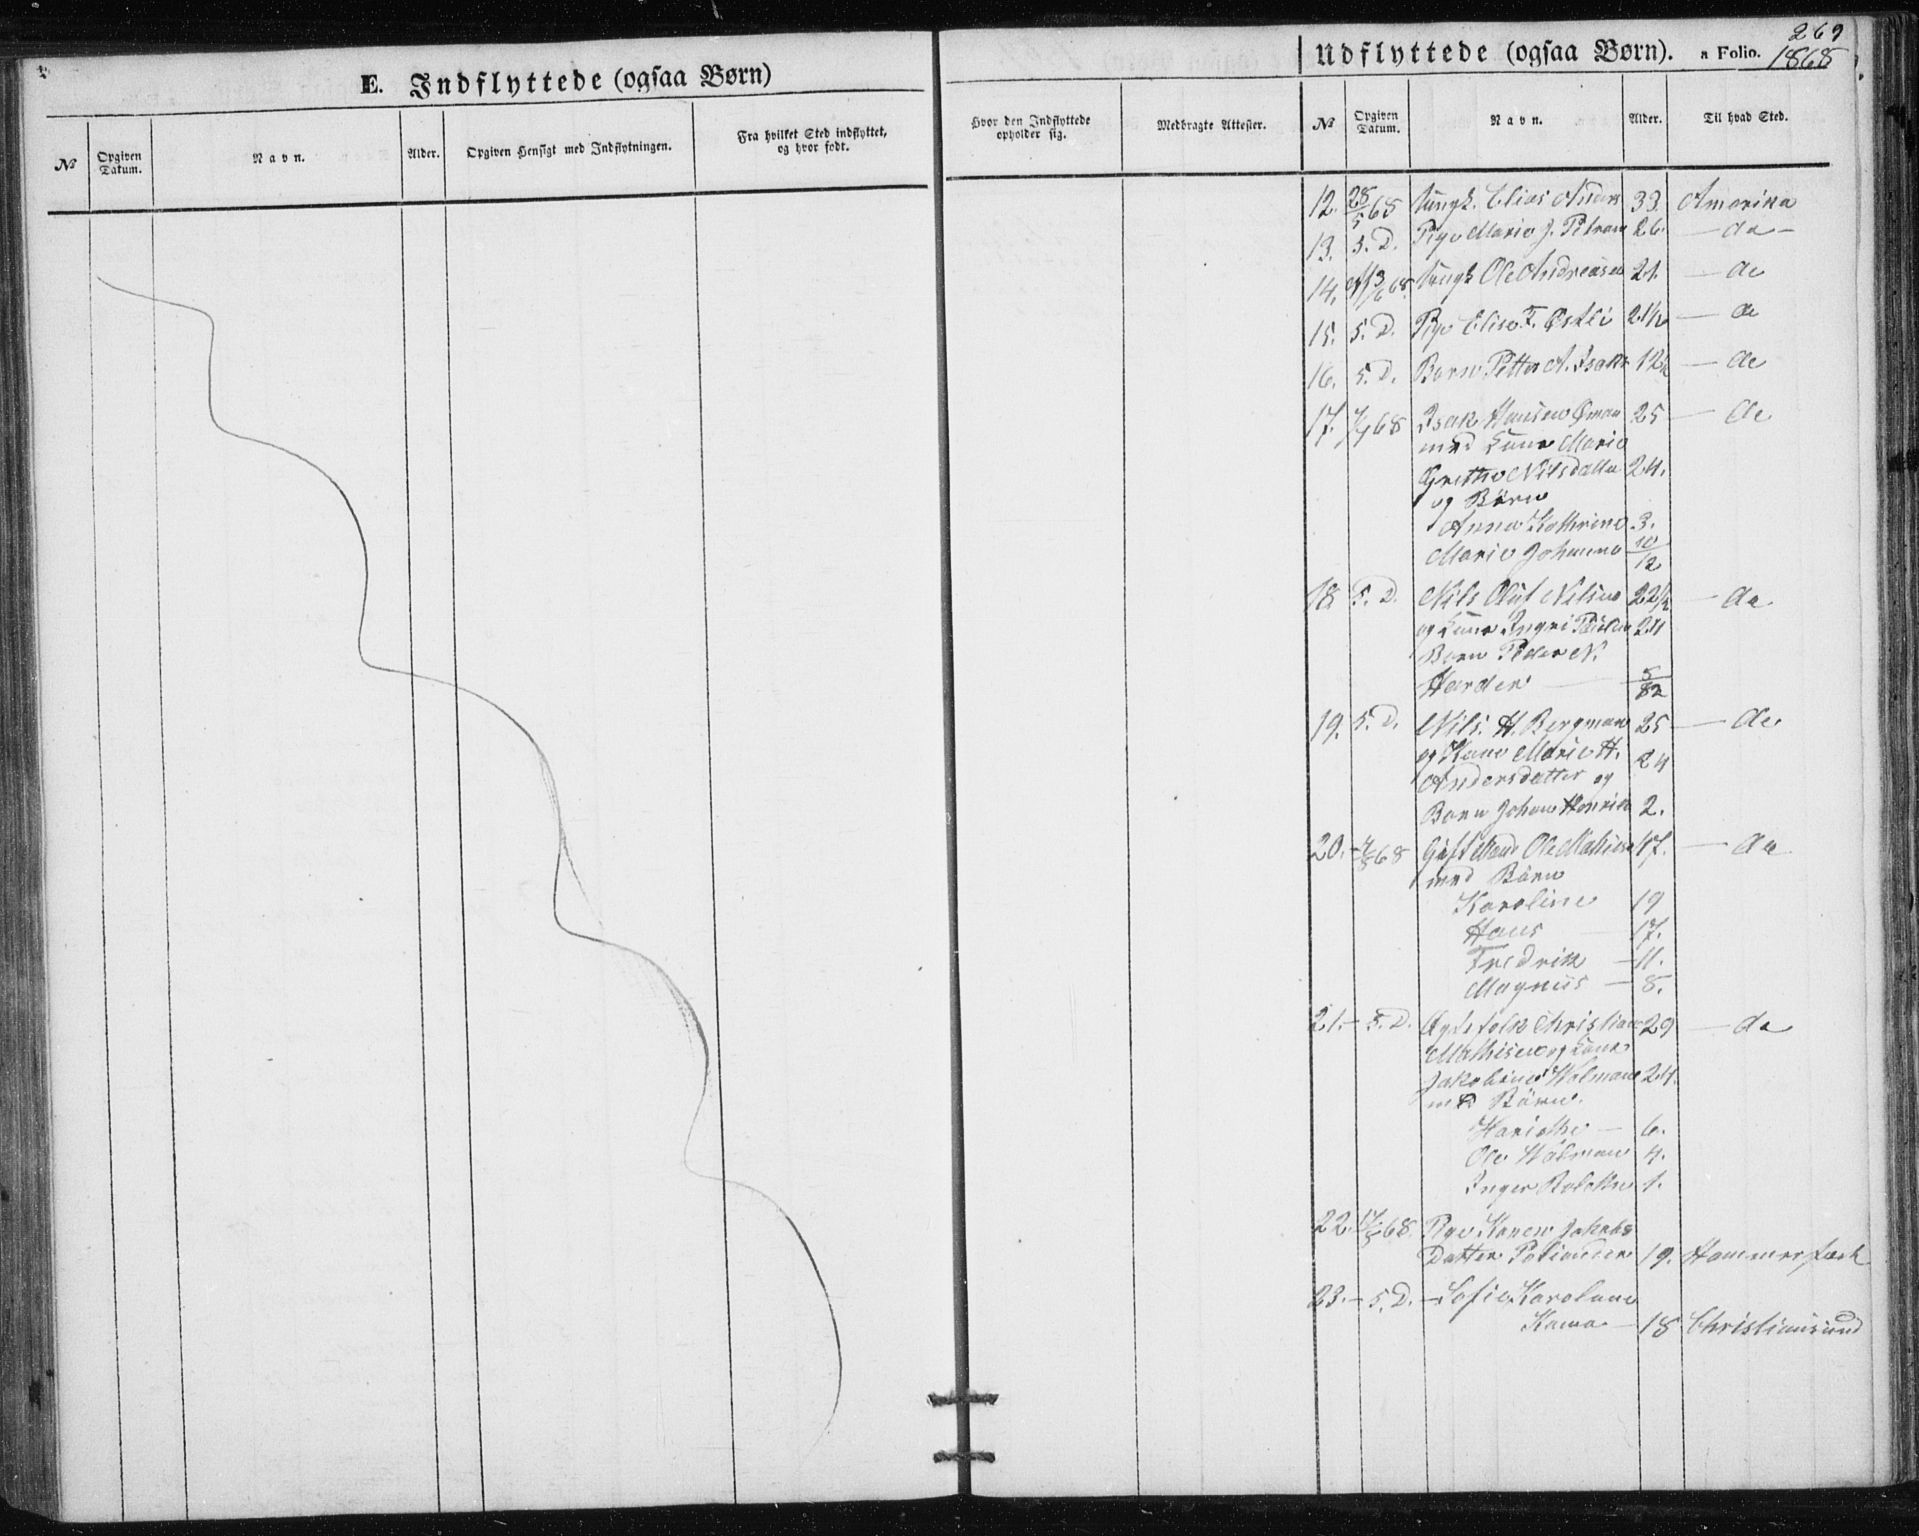 E. Indflyttede (ogsaa Børn)
№ Opgiven Datum. Navn. Alder. Opgiven Hensigt med Indflytningen. Fra hvilket Sted indflyttet, og hvor født.
Hvor den Indflyttede opholder sig. Medbragte Attester.
269
Udflyttede (ogsaa Børn). a Folio. 1868
№ Opgiven Datum. Navn. Alder. Til hvad Sted.
12. 28/5 68 Ungk. Elias Anders 33. Amerika
13. s. D. Pige Marie J. 26. — do —
14. 13/6 68. Ungk Ole Andreasen 21. — do
15. s. D. Pige Elise F. Østli 21½ — do
16. s. D. Barn Petter A. Isaks 12½ — do
17. 68 Isak Hansen 25 — do
med Kone Marie
Grethe Nilsdatter 24.
og Børn
Anna Kathrine 3.
Marie Johanna 10/12
18. s. D. Nils Oluf Nilsen 22½ — do
og Kone Ingri 24
Barn Peder N.
Harder —
19. s. D. Nils. H. Bergman 25 — do
og Kone Marie H. 24
Andersdatter og
Barn Johan Henrik 2.
20. 68 Gift Mand Ole Mathisen 47. — do
med Børn
Karoline 19
Hans — 17.
Fredrik — 11.
Magnus — 8.
21. — s. D. Ægtefolk Christian 29 — do
Mathisen og Kone
Jakobine Holman 24.
med Børn.
— 6.
Ole Holman 4.
Inger 1.
22. 68. Pige Karen Jakobs
Datter 19. Hammerfest
23. — s. D. — Sofie
— 18 Christiansund